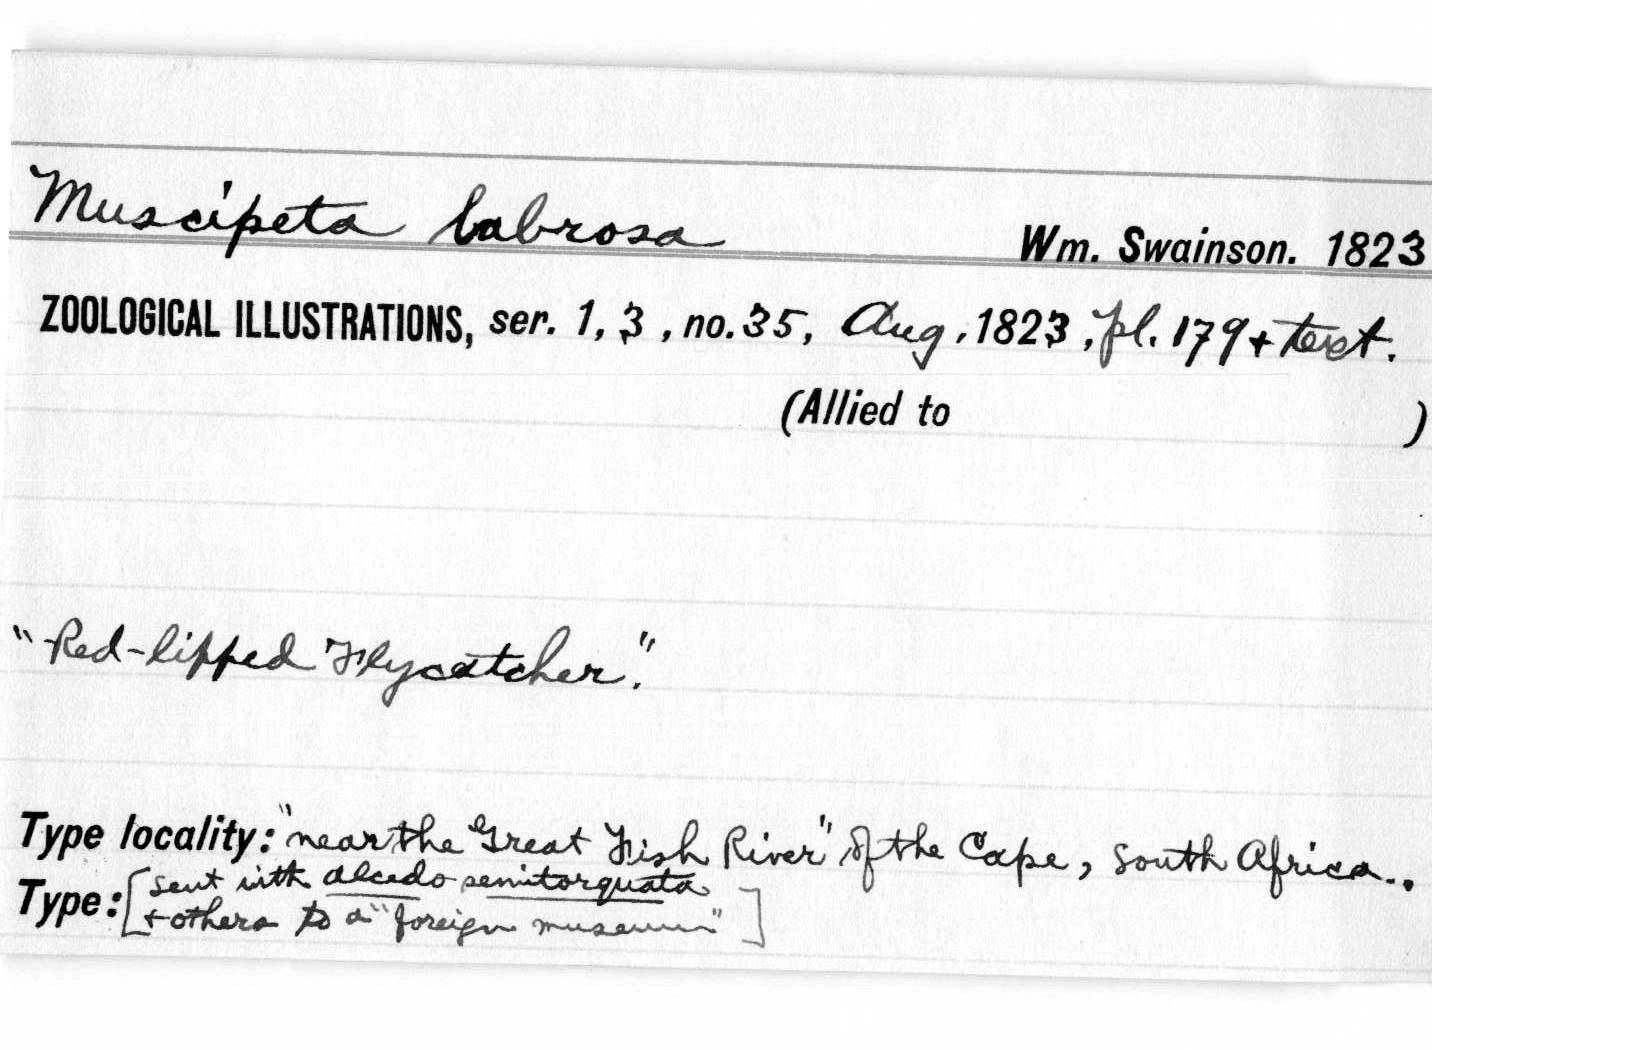 Muscipeta labrosa Wm. Swainson. 1823
ZOOLOGICAL ILLUSTRATIONS, ser. 1, 3, no. 35, Aug, 1823, pl. 179 + text.
(Allied to )
"Red-lipped Flycatcher."
Type locality: "near the Great Fish River" of the Cape, South Africa..
Type: [sent with alcedo semitorquata
+ others to a "foreign museum"]